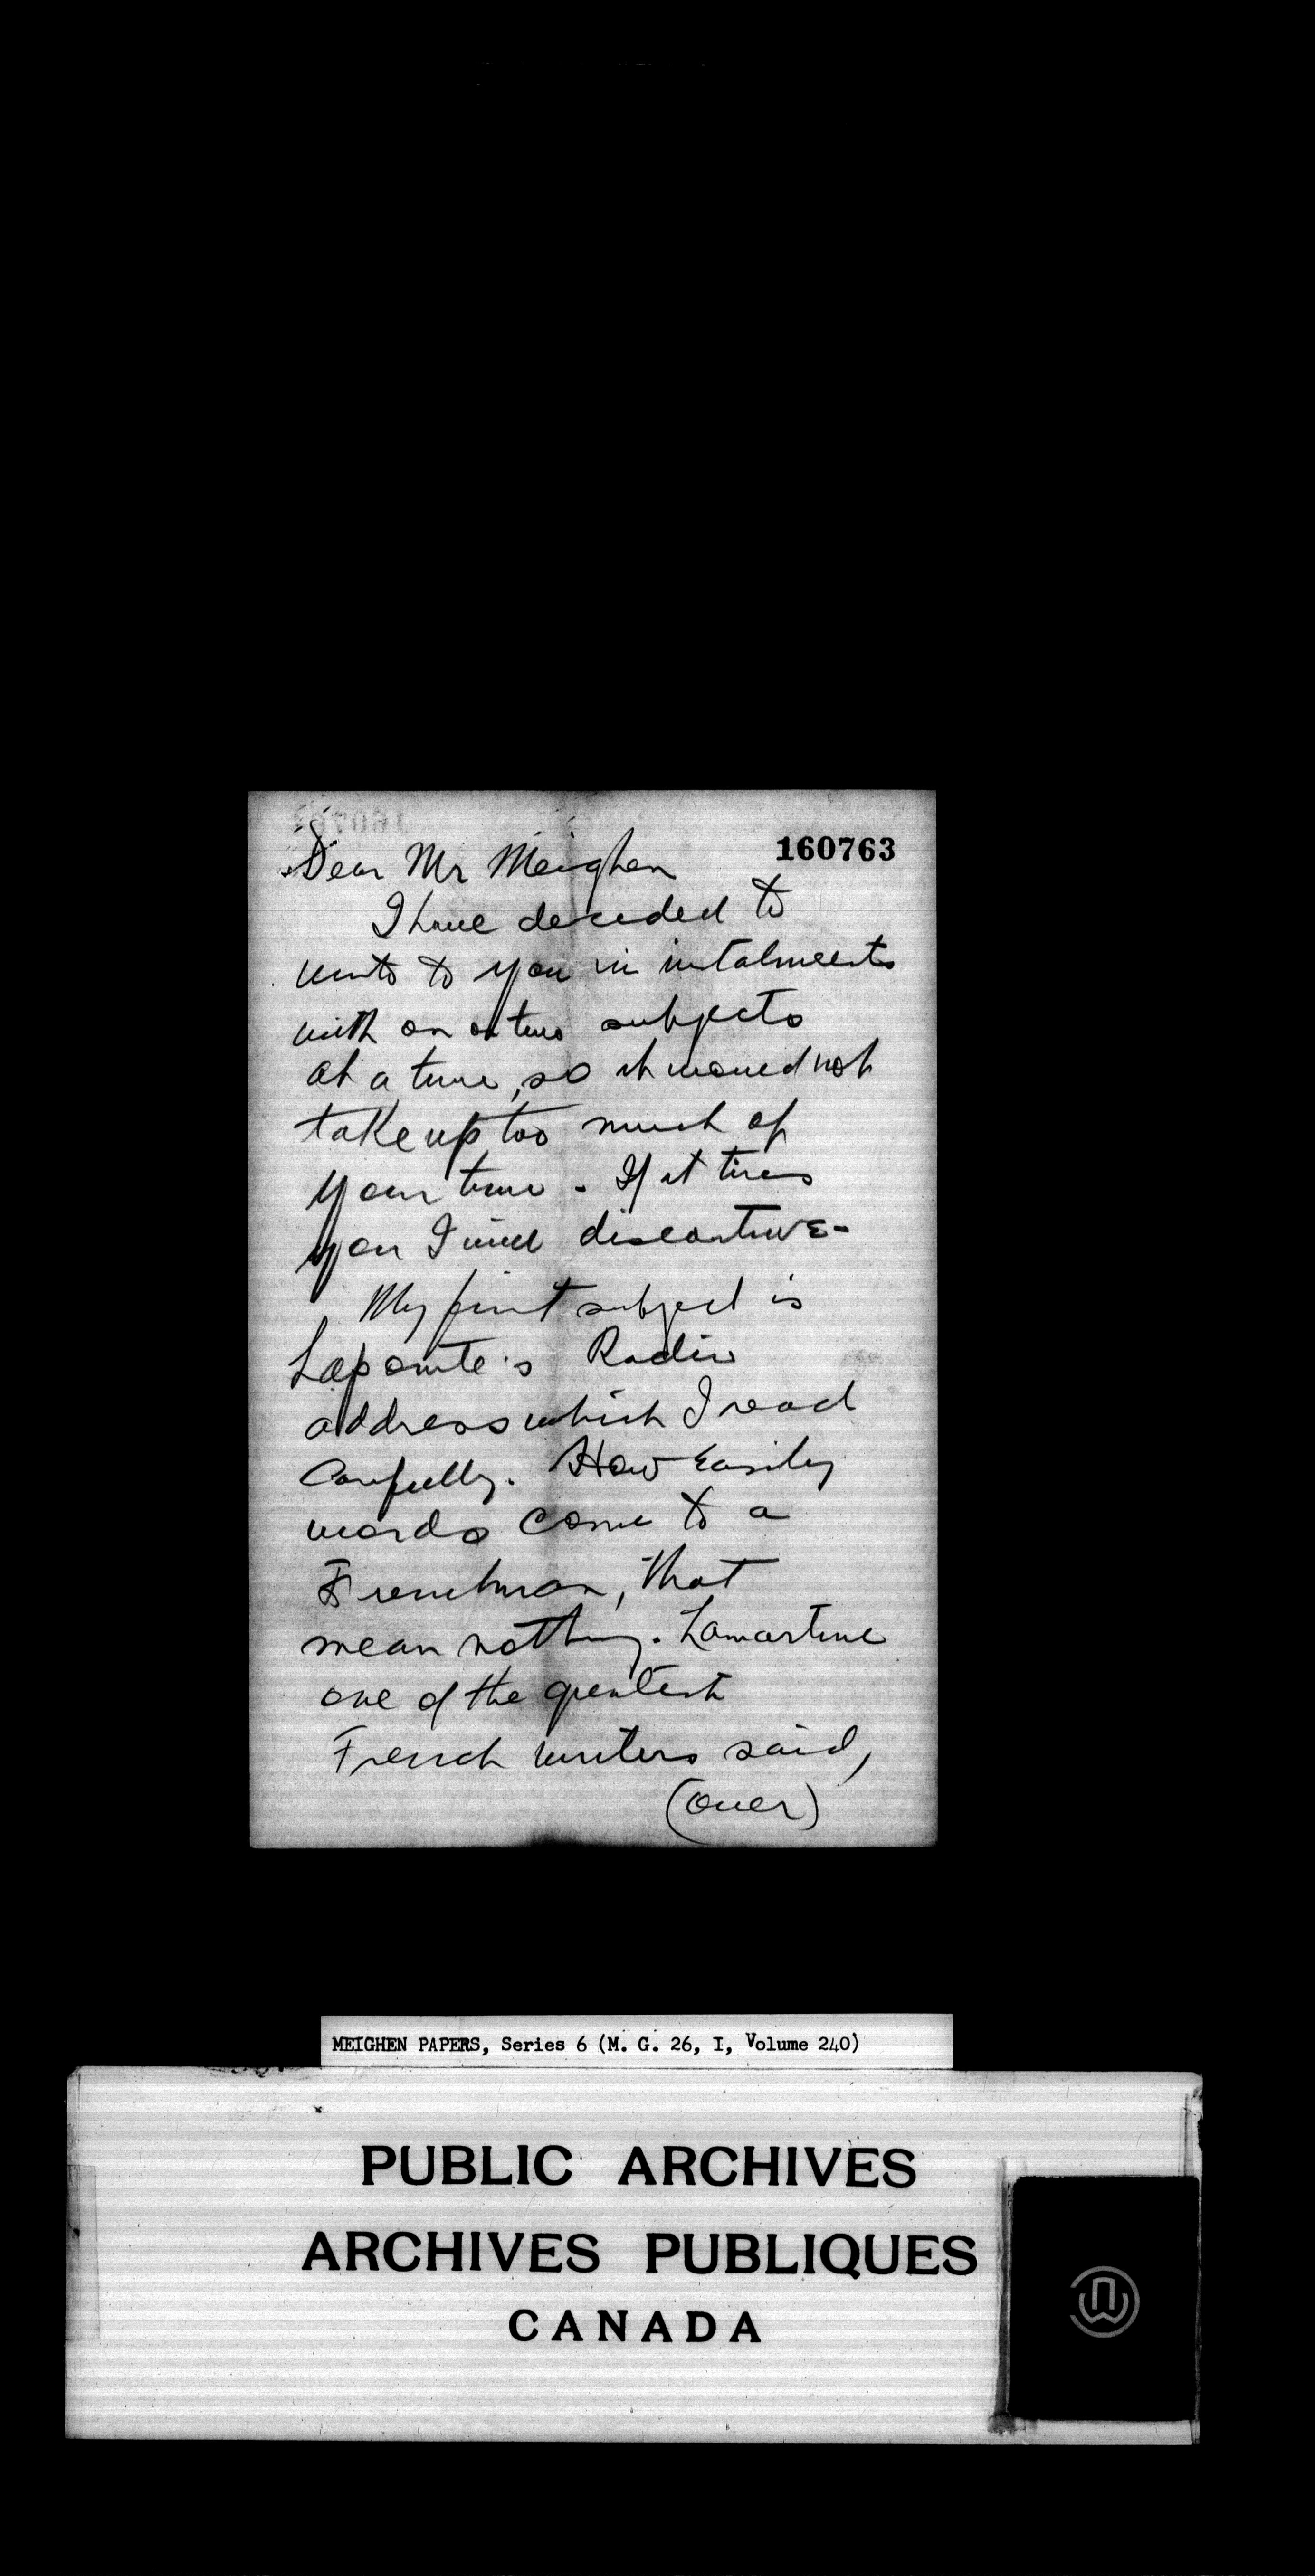 160763
Dear Mr Meighen
I have decided to
write to you in instalments
with on or two subjects
at a time, so it would not
take up too much of
your time - If it tires
you I will discontinue-
My first subject is
Lapointe's Radio
address which I read
Carefully. How Easily
words come to a
Frenchman, that
mean nothing. Lamartine
one of the greatest
French writers said,
(over)
MEIGHEN PAPERS, Series 6 (M. G. 26, I, Volume 240)
PUBLIC ARCHIVES
ARCHIVES PUBLIQUES
CANADA